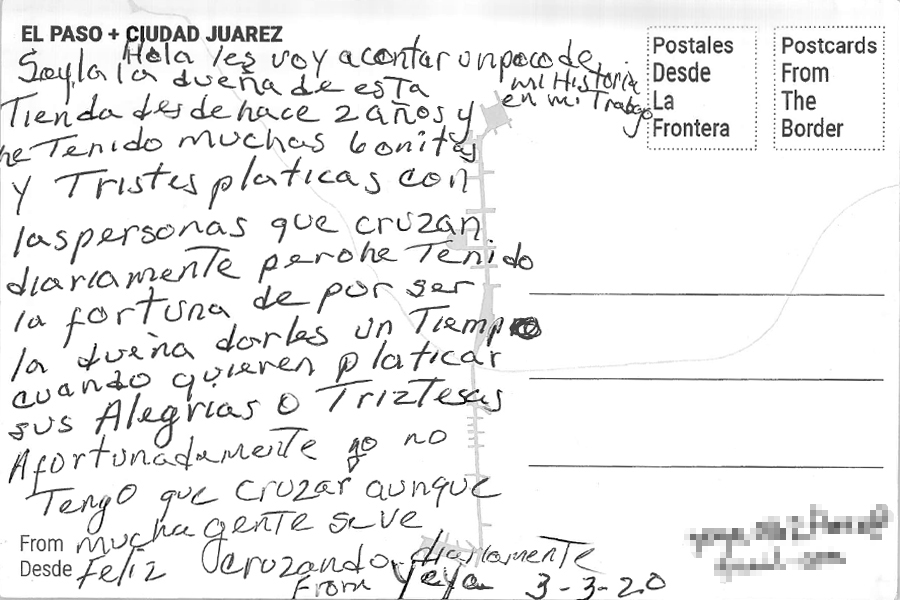 EL PASO + CIUDAD JUAREZ
Hola les voy acontar un poco de
mi Historia
en mi Trabajo
Soy la dueña de esta
Tienda desde hace 2 años y
he Tenido muchas bonitas
y Tristes platicas con
las personas que cruzan
diariamente pero he Tenido
la fortuna de por ser
la dueña darles un Tiempo
cuando quieren platicar
sus Alegrias o Triztesas
Afortunadamente yo no
Tengo que cruzar aunque
mucha gente se ve
feliz cruzando diariamente
From Yeya 3-3-20
From
Desde
Postales
Desde
La
Frontera
Postcards
From
The
Border